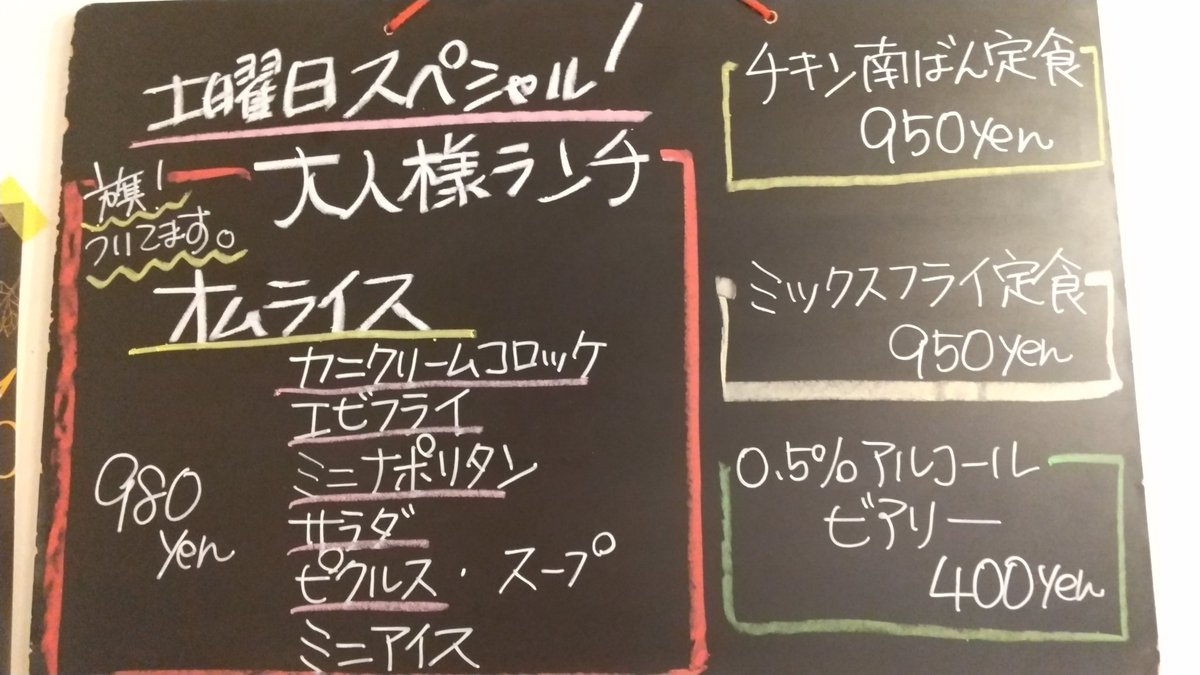 土曜日スペシャル!
大人様ランチ
旗!
ついてます。
オムライス
カニクリームコロッケ
エビフライ
ミニナポリタン
サラダ
ピクルス・スープ
ミニアイス
980
yen
チキン南ばん定食
950yen
ミックスフライ定食
950yen
0.5%アルコール
ビアリー
400yen